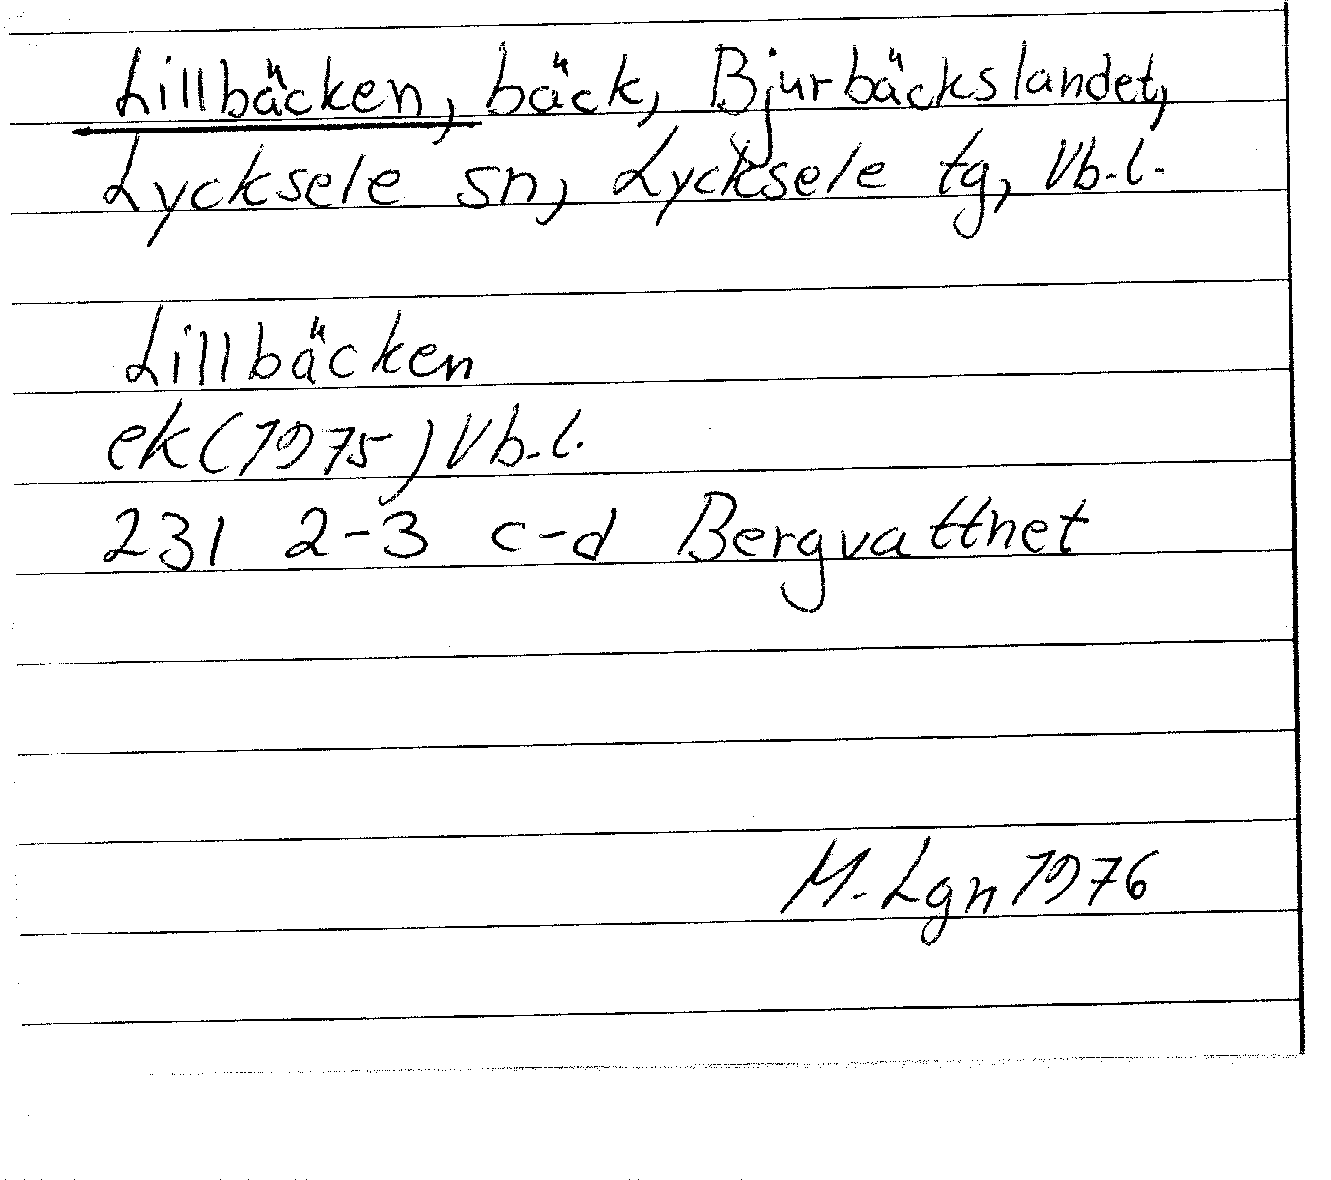 Lillbäcken, bäck, Bjurbäckslandet,
Lycksele sn, Lycksele tg, Vb.l.
Lillbäcken
ek(1975) Vb.l.
231 2-3 c-d Bergvattnet
M. Lgn 1976